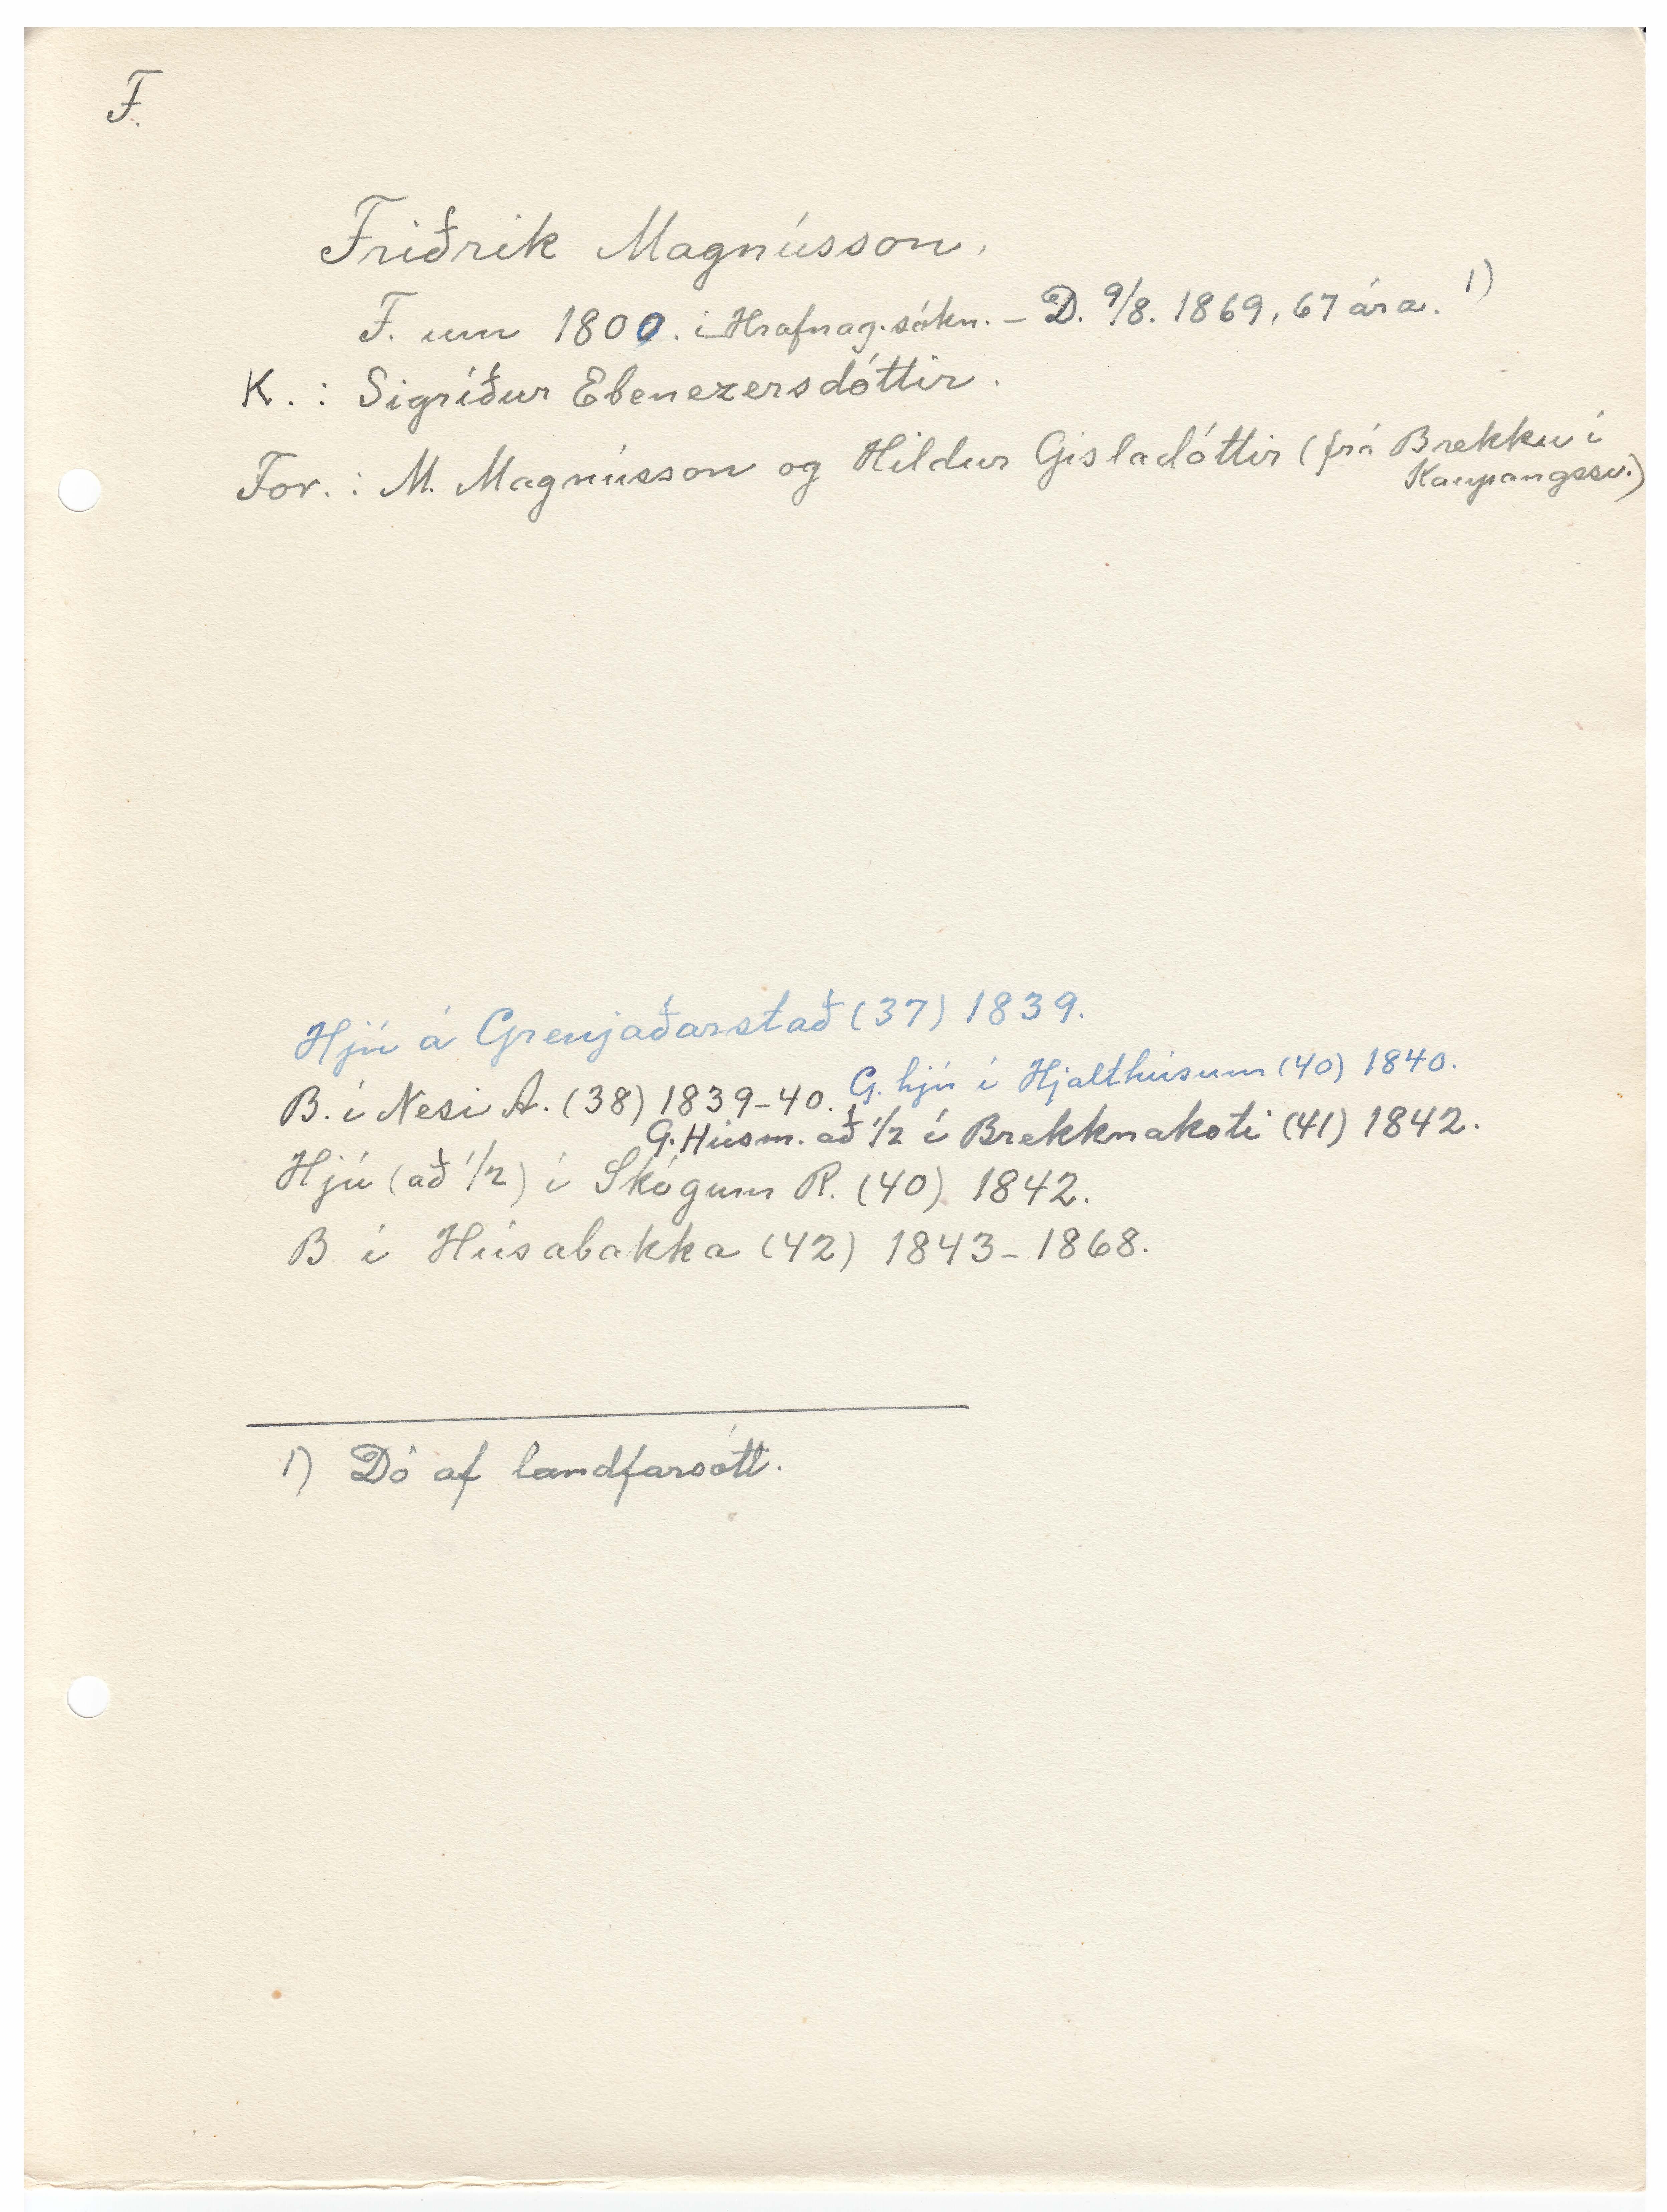 F.
Friðrik Magnússon.
F. um 1800. í Hrafnag.sókn. – D. 9/8. 1869, 67 ára. 1)
K. : Sigríður Ebenezersdóttir.
For. : M. Magnússon og Hildur Gisladóttir (frá Brekku í
Kaupangssv.)
Hjú á Grenjaðarstað (37) 1839.
B. í Nesi A. (38) 1839-40. G. hjú í Hjalthúsum (40) 1840.
G. Húsm. að 1/2 í Brekknakoti (41) 1842.
Hjú (að 1/2) í Skógum R. (40) 1842.
B í Húsabakka (42) 1843-1868.
1) Dó af landfarsótt.